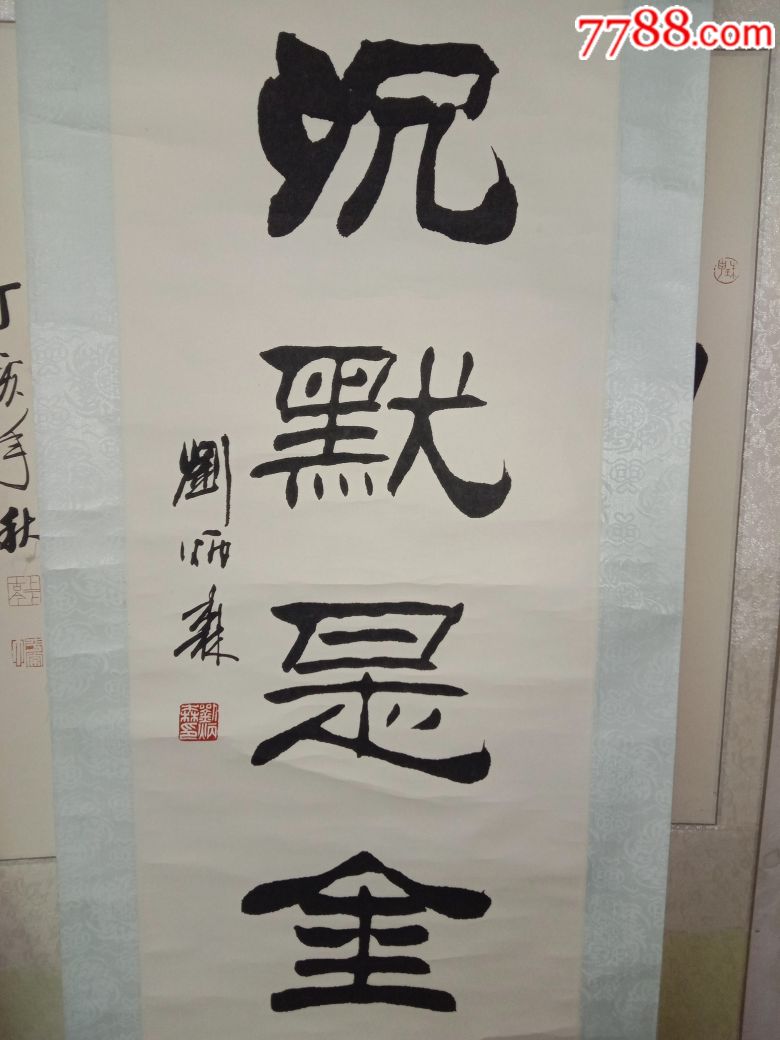 7788.com
沉默是金
劉炳森
劉炳森印
丁亥年秋